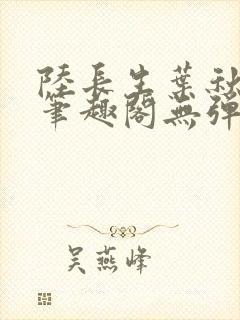 陸長生葉秋
筆趣閣無彈
吳燕峰